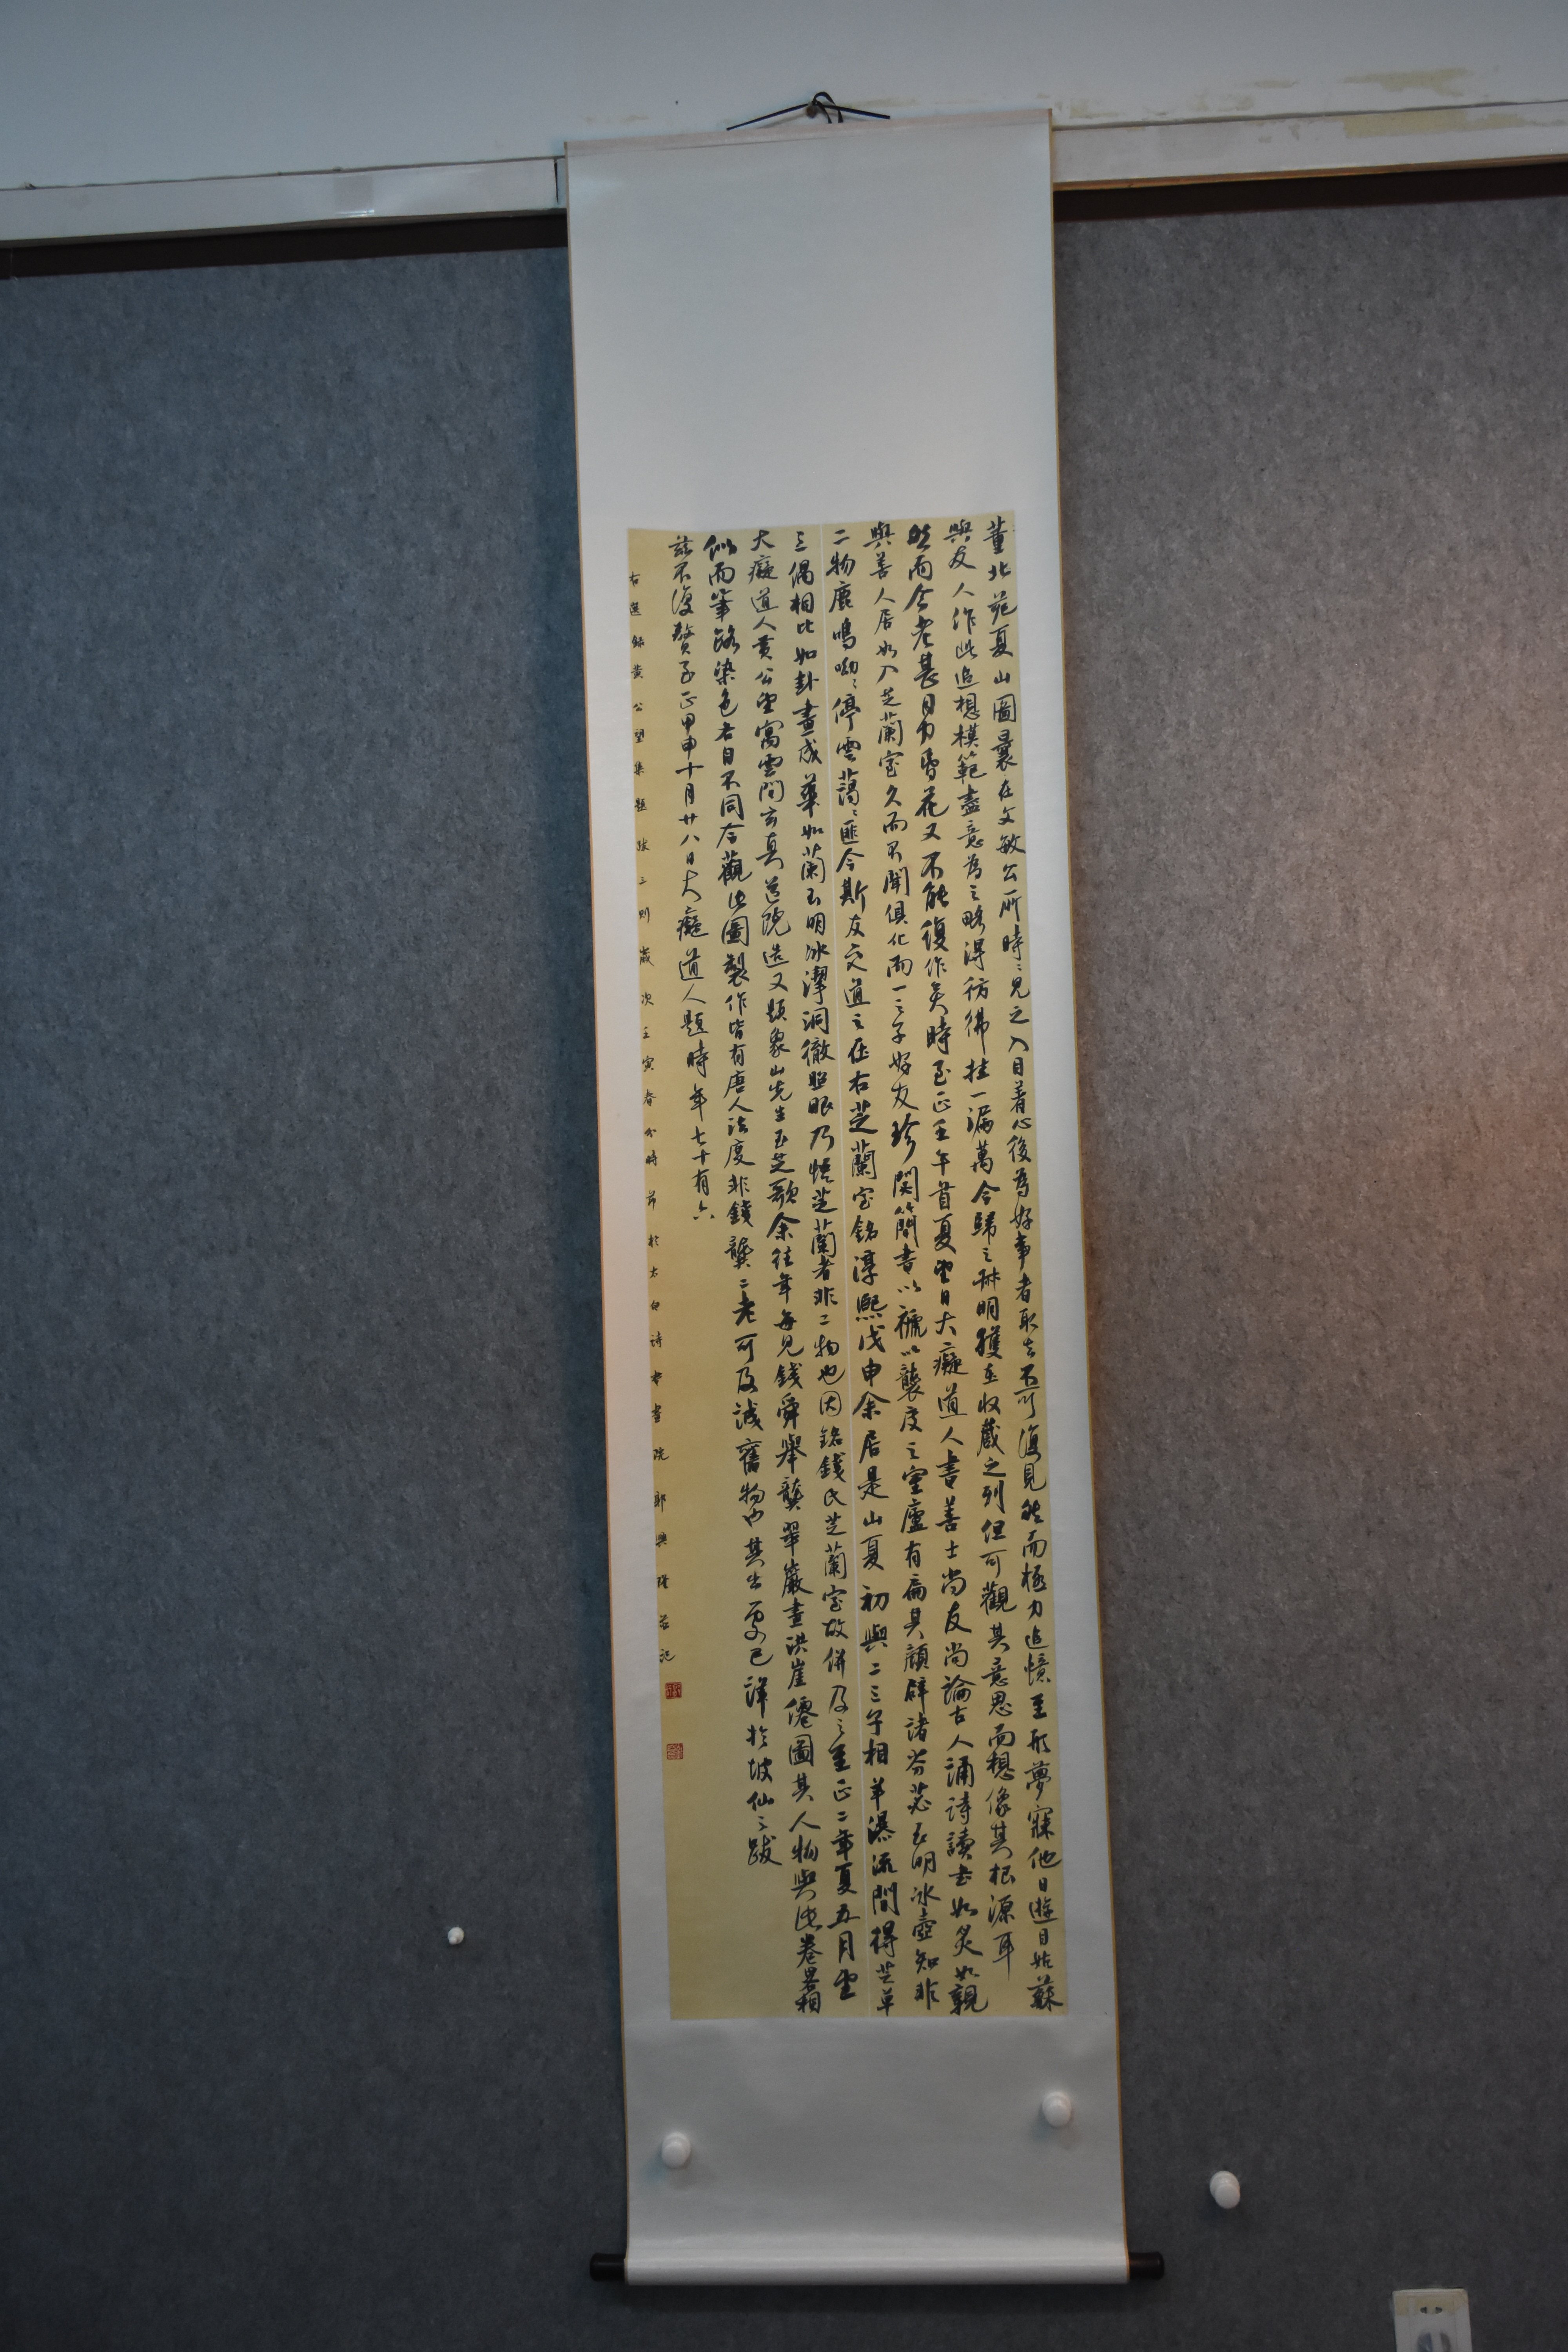 董北苑夏山圖曩在文敏公所時〻見之入目着心後為好事者取去不可復見然而極力追憶至形夢寐他日遊目姑蘇
與友人作此追想模範盡意為之略得彷彿挂一漏萬今歸之琳明獲在收藏之列但可觀其意思而想像其根源耳
然而今老甚目力昏花又不能復作矣時至正壬午首夏望日大癡道人書善士尚友尚論古人誦詩讀書如炙如親
與善人居如入芝蘭室久而不聞俱化而一之子好友珍閟簡書以褫以襲度之室廬有扁其顏辟諸芬苾玉明冰壺知非
二物鹿鳴呦〻停雲藹〻匪今斯友交道之在右芝蘭室銘淳熙戊申余居是山夏初與二三子相羊瀑流間得芝草
三偶相比如卦畫成華如蘭玉明冰潔洞徹照眼乃悟芝蘭者非二物也因銘錢氏芝蘭室故併及之至正二年夏五月望
大癡道人黃公望寓雲間玄真道院造又題象山先生玉芝歌余往年每見錢舜舉龔翠巖畫洪崖僊圖其人物與此卷畧相
似而筆路染色者自不同今觀此圖製作皆有唐人法度非錢龔二老可及誠舊物也其出處已詳於坡仙之跋
茲不復贅至正甲申十月廿八日大癡道人題時年七十有六
右選錄黃公望集題跋三則歲次壬寅春分時節於太白詩書畫院鄭興 並記